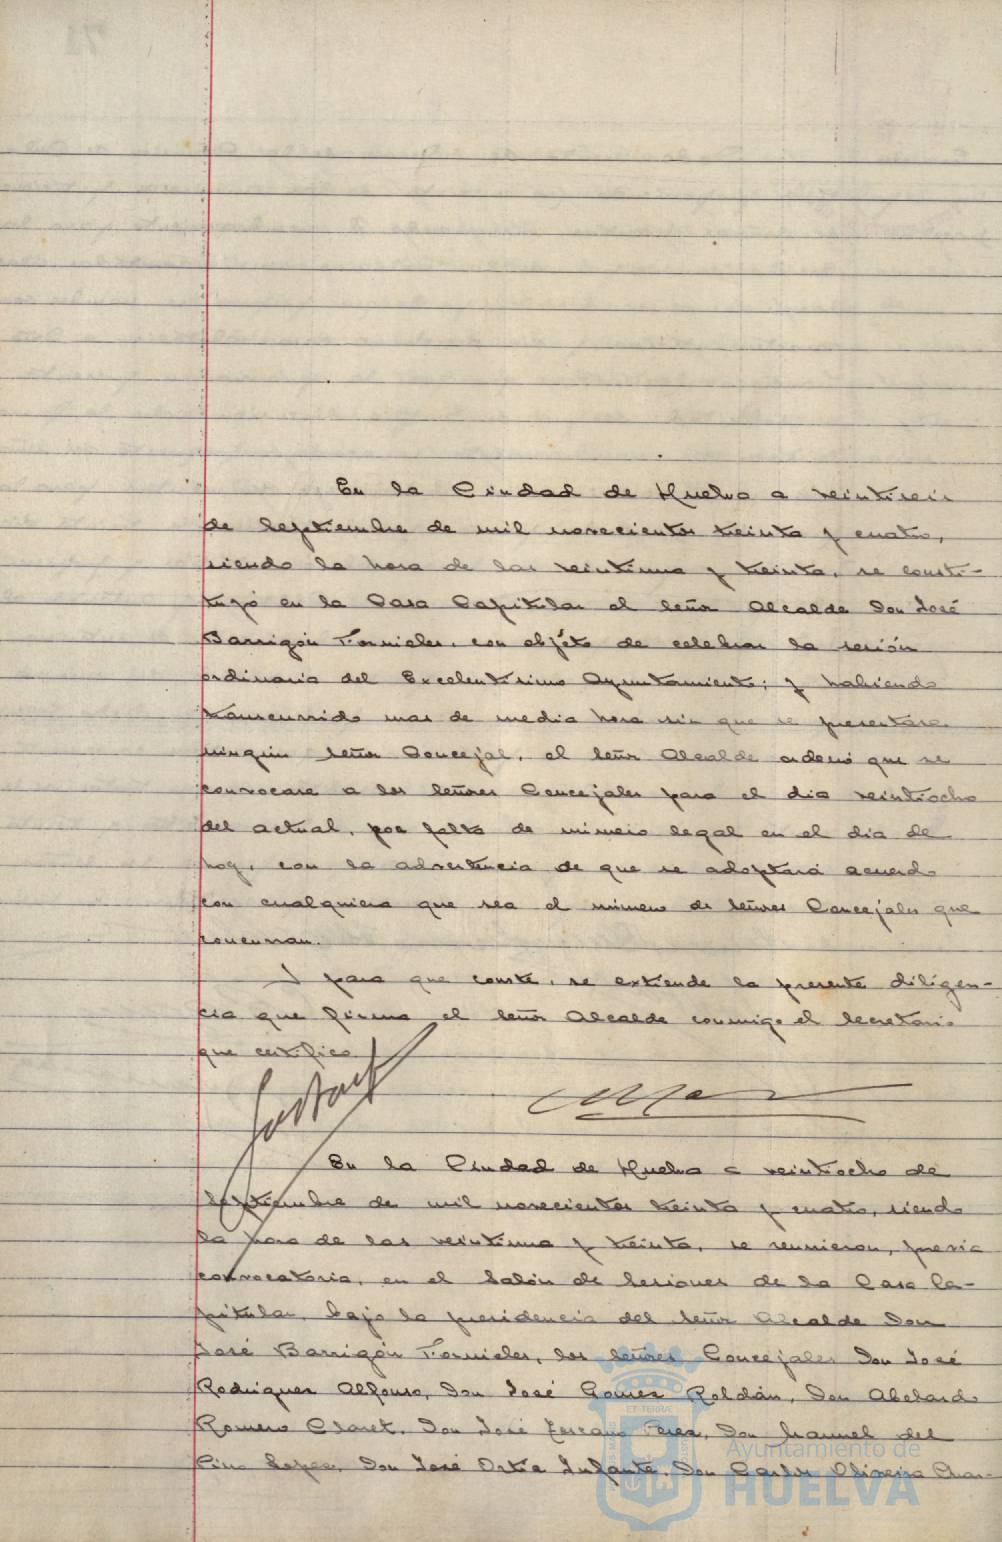 En la Ciudad de Huelva a veintiseis
de Septiembre de mil novecientos treinta y cuatro,
siendo la hora de las veintiuna y treinta, se consti-
tuyó en la Casa Capitular el Señor Alcalde Don José
Barrigón Fornieles, con objeto de celebrar la sesión
ordinaria del Excelentísimo Ayuntamiento; y habiendo
transcurrido mas de media hora sin que se presentara
ningún Señor Concejal, el Señor Alcalde ordenó que se
convocara a los Señores Concejales para el dia veintiocho
del actual, por falta de número legal en el dia de
hoy, con la advertencia de que se adoptará acuerdo
con cualquiera que sea el número de Señores Concejales que
concurran.
Y para que conste, se extiende la presente diligen-
cia que firma el Señor Alcalde conmigo el Secretario
que certifico.
En la Ciudad de Huelva a veintiocho de
Septiembre de mil novecientos treinta y cuatro, siendo
la hora de las veintiuna y treinta, se reunieron, previa
convocatoria, en el Salón de Sesiones de la Casa Ca-
pitular, bajo la presidencia del Señor Alcalde Don
José Barrigón Fornieles, los Señores Concejales Don José
Rodriguez Alfonso, Don José Gomez Roldán, Don Abelardo
Romero Claret, Don José Terrano Perez, Don Manuel del
Pino Lopez, Don José Ortiz Infante, Don Carlos Oliveira
Ayuntamiento de
HUELVA